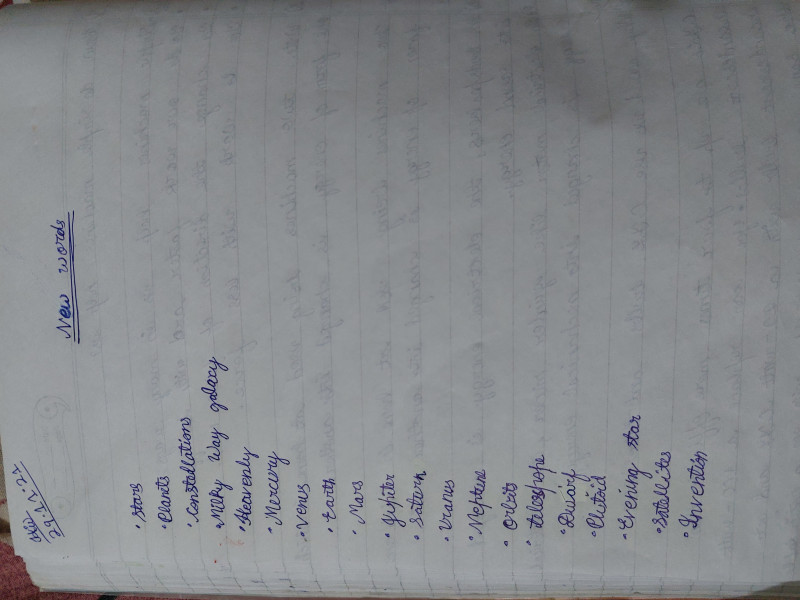 29.12.22
New words
• Stars
• Planets
• Constellations
• Milky Way galaxy
• Heavenly
• Mercury
• Venus
• Earth
• Mars
• Jupiter
• Saturn
• Uranus
• Neptune
• Orbits
• Telespope
• Plutoid
• Evening star
• Satellites
• Invention